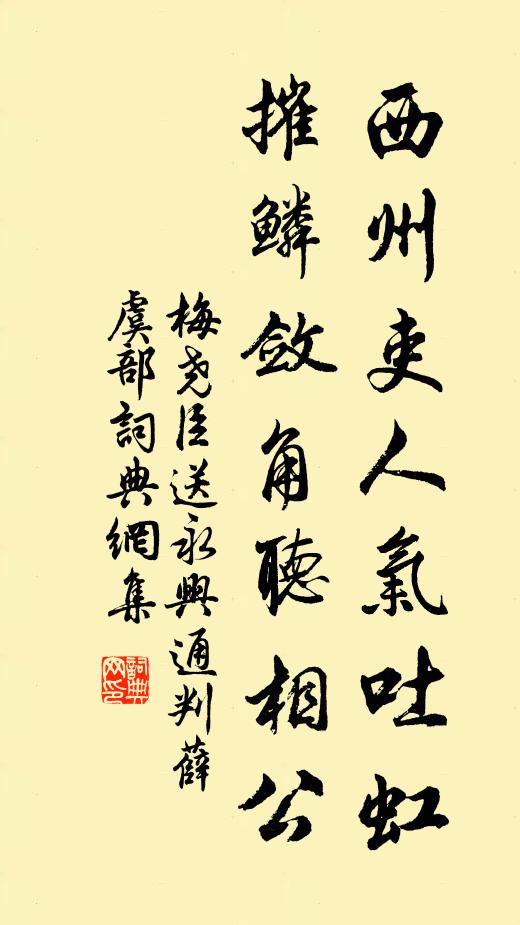 西州吏人氣吐虹
摧鱗斂角聽相公
梅堯臣送永興通判薛
虞部詞典網集
詞典网印